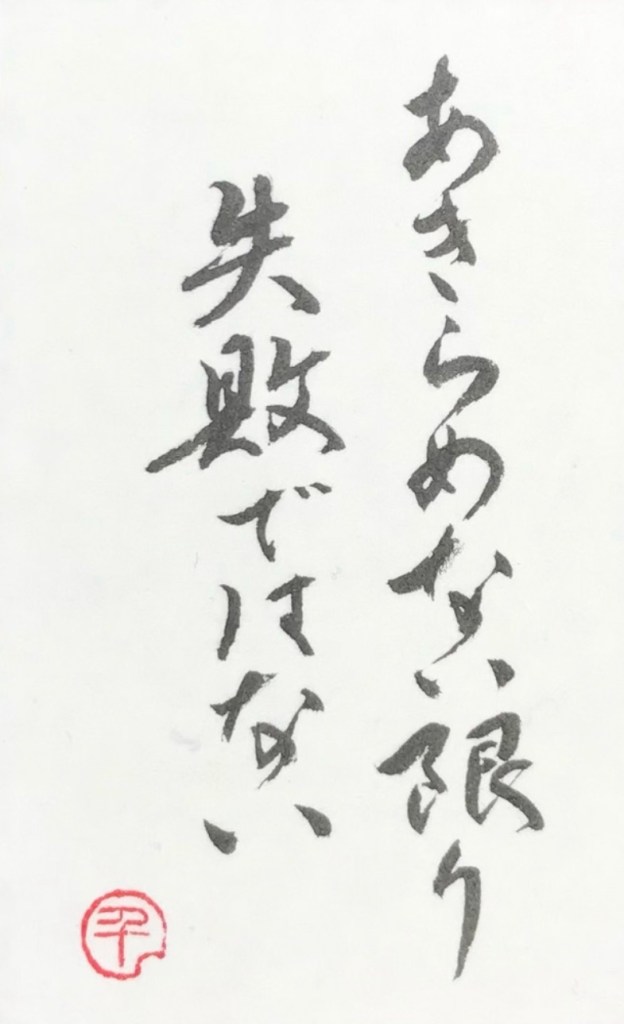 あきらめない限り
失敗ではない